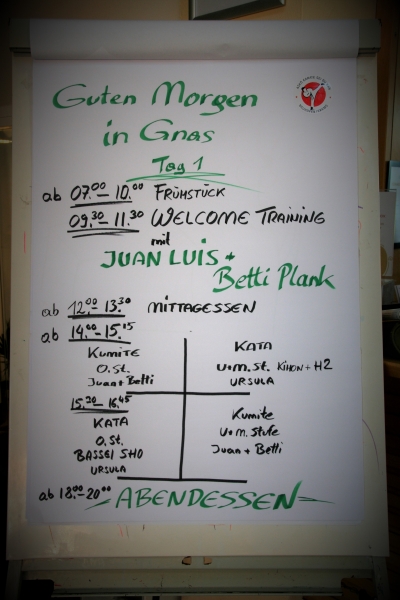 Guten Morgen
in Gnas
Tag 1
ab 07⁰⁰ – 10.⁰⁰ FRÜHSTÜCK
09.³⁰ – 11.³⁰ WELCOME TRAINING
mit
JUAN LUIS +
Betti Plank
ab 12.⁰⁰ – 13.³⁰ MITTAGESSEN
ab 14.⁰⁰ – 15.¹⁵
KUMITE
O.St.
Juan + Betti
KATA
U+M.St. KIHON + H2
URSULA
15.³⁰ – 16.⁴⁵
KATA
O.St.
BASSEI SHO
URSULA
Kumite
U+M.Stufe
Juan + Betti
ab 18.⁰⁰ – 20⁰⁰ ABENDESSEN